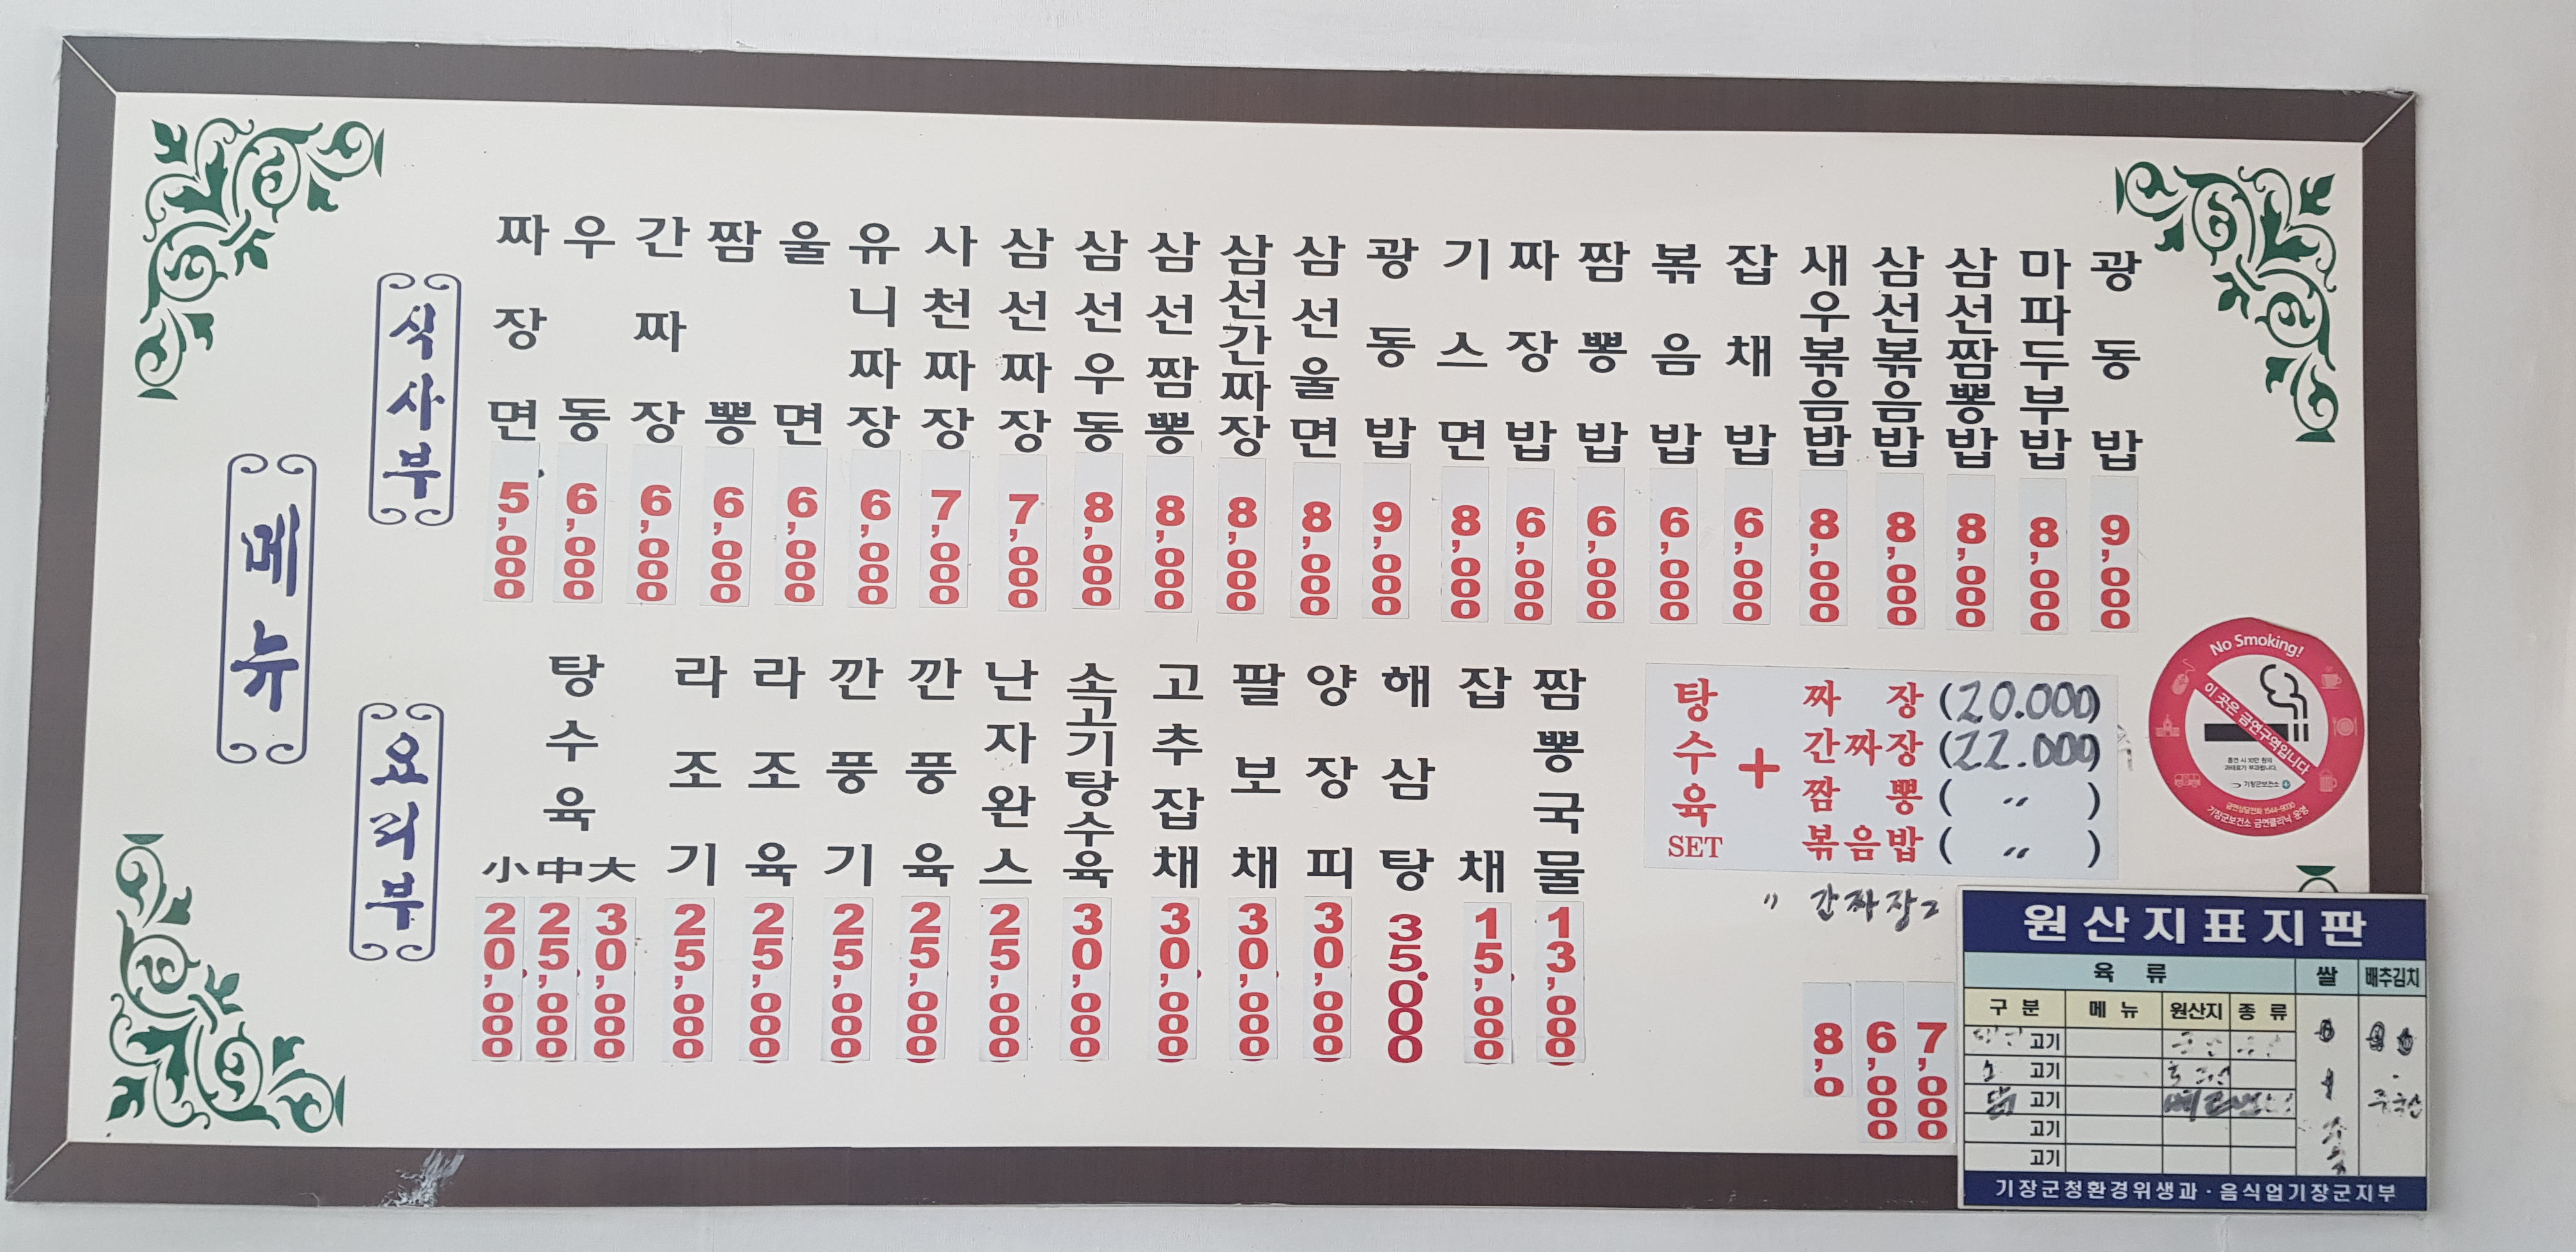 메뉴
식사부
짜장면 5,000
우동 6,000
간짜장 6,000
짬뽕 6,000
울면 6,000
유니짜장 6,000
사천짜장 7,000
삼선짜장 7,000
삼선우동 8,000
삼선짬뽕 8,000
삼선간짜장 8,000
삼선울면 8,000
광동밥 9,000
기스면 8,000
짜장밥 6,000
짬뽕밥 6,000
볶음밥 6,000
잡채밥 6,000
새우볶음밥 8,000
삼선볶음밥 8,000
삼선짬뽕밥 8,000
마파두부밥 8,000
광동밥 9,000
요리부
탕수육
小 20,000
中 25,000
大 30,000
라조기 25,000
라조육 25,000
깐풍기 25,000
깐풍육 25,000
난자완스 25,000
속고기탕수육 30,000
고추잡채 30,000
팔보채 30,000
양장피 30,000
해삼탕 35.000
잡채 15,000
짬뽕국물 13,000
탕수육 SET +
짜장 (20.000)
간짜장 (22.000)
짬뽕 ( 〃 )
볶음밥 ( 〃 )
〃 간짜장
8,0
6,000
7,000
No Smoking!
이 곳은 금연구역입니다
흡연 시 10만 원의
과태료가 부과됩니다.
기장군보건소
금연상담전화 1544-9030
기장군보건소 금연클리닉 운영
원산지표지판
육류 쌀 배추김치
구분 메뉴 원산지 종류
고기
소 고기
닭 고기
고기
고기
중국산
기장군청환경위생과·음식업기장군지부